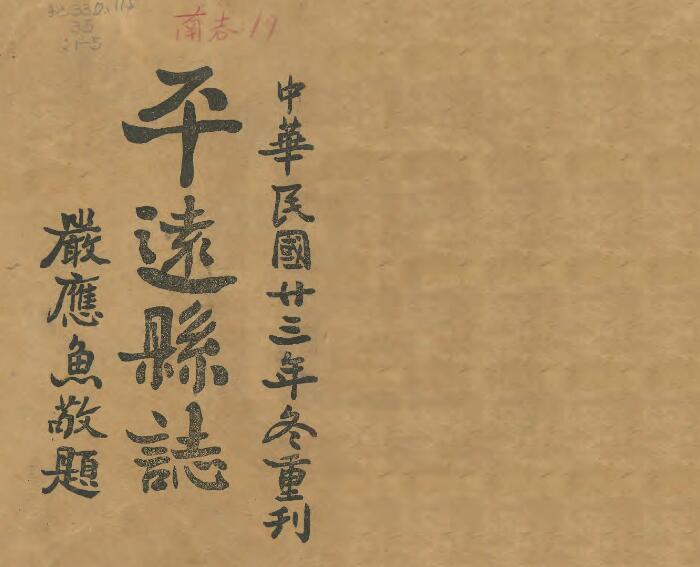 中華民國廿三年冬重刊
平遠縣誌
嚴應魚敬題
35